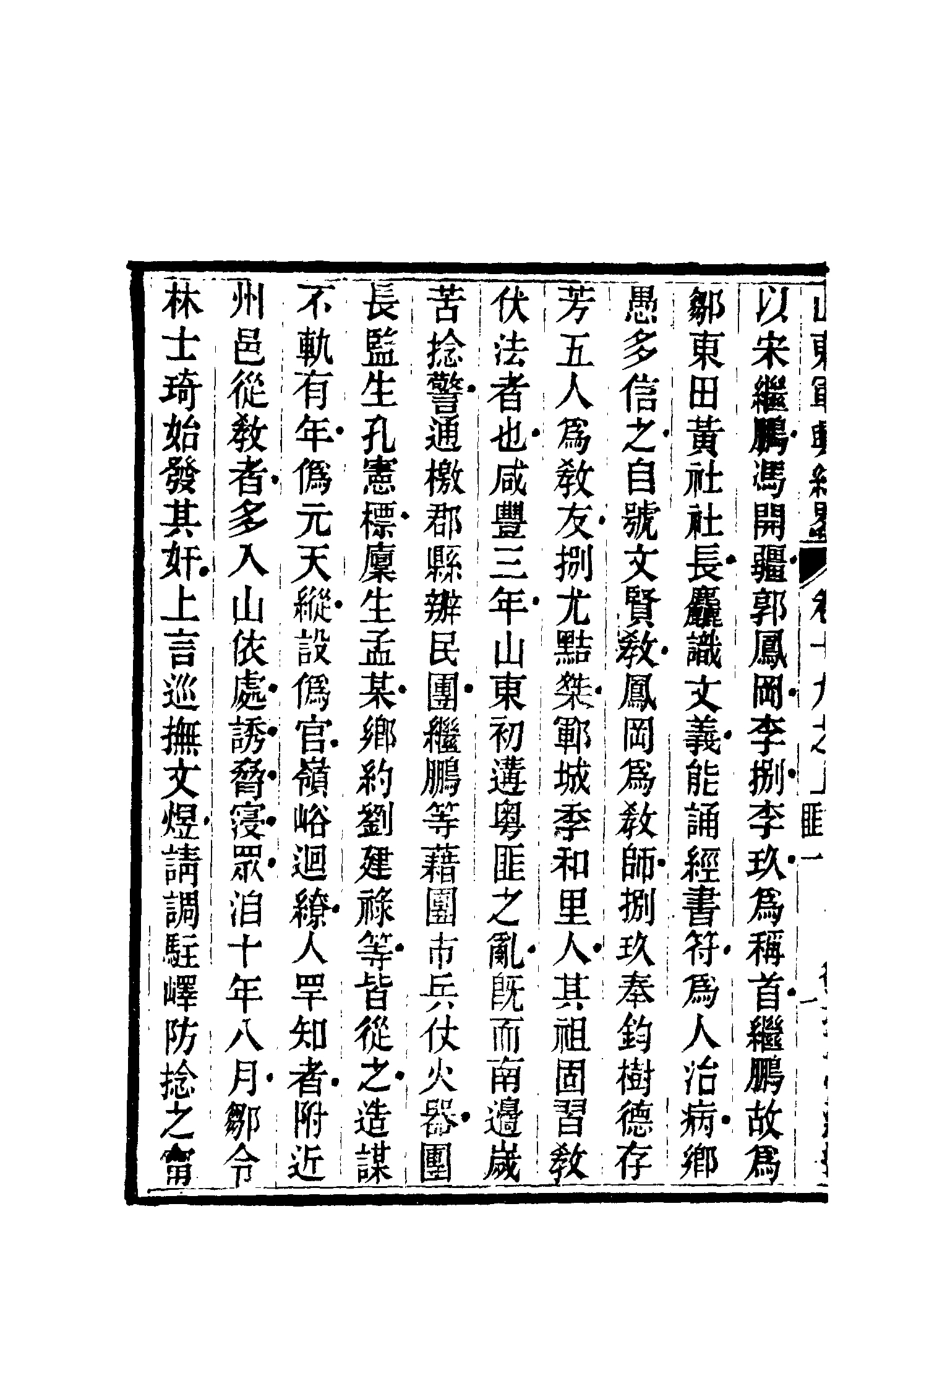 山東軍興紀畧 卷十九之上 匪一
以宋繼鵬馮開疆郭鳳岡李捌李玖爲稱首繼鵬故爲
鄒東田黃社社長麤識文義能誦經書符爲人治病鄉
愚多信之自號文賢敎鳳岡爲敎師捌玖奉鈞樹德存
芳五人爲敎友捌尤黠桀鄆城季和里人其祖固習敎
伏法者也咸豐三年山東初遘粤匪之亂旣而南邊歲
苦捻警通檄郡縣辦民團繼鵬等藉團市兵仗火器團
長監生孔憲標廩生孟某鄉約劉建祿等皆從之造謀
不軌有年僞元天縱設僞官嶺峪迴繚人罕知者附近
州邑從敎者多入山依處誘脅寖眾洎十年八月鄒令
林士琦始發其奸上言巡撫文煜請調駐嶧防捻之甯